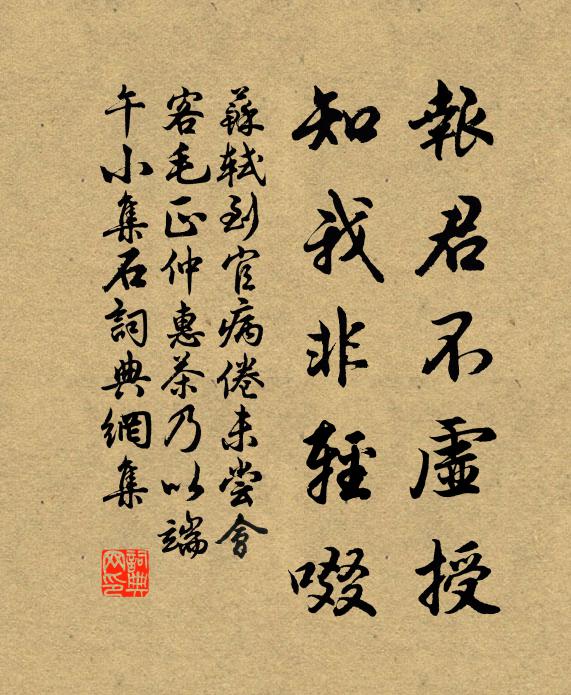 報君不虛授
知我非輕啜
蘇軾到官病倦未嘗會
客毛正仲惠茶乃以端
午小集石詞典網集
詞典網印